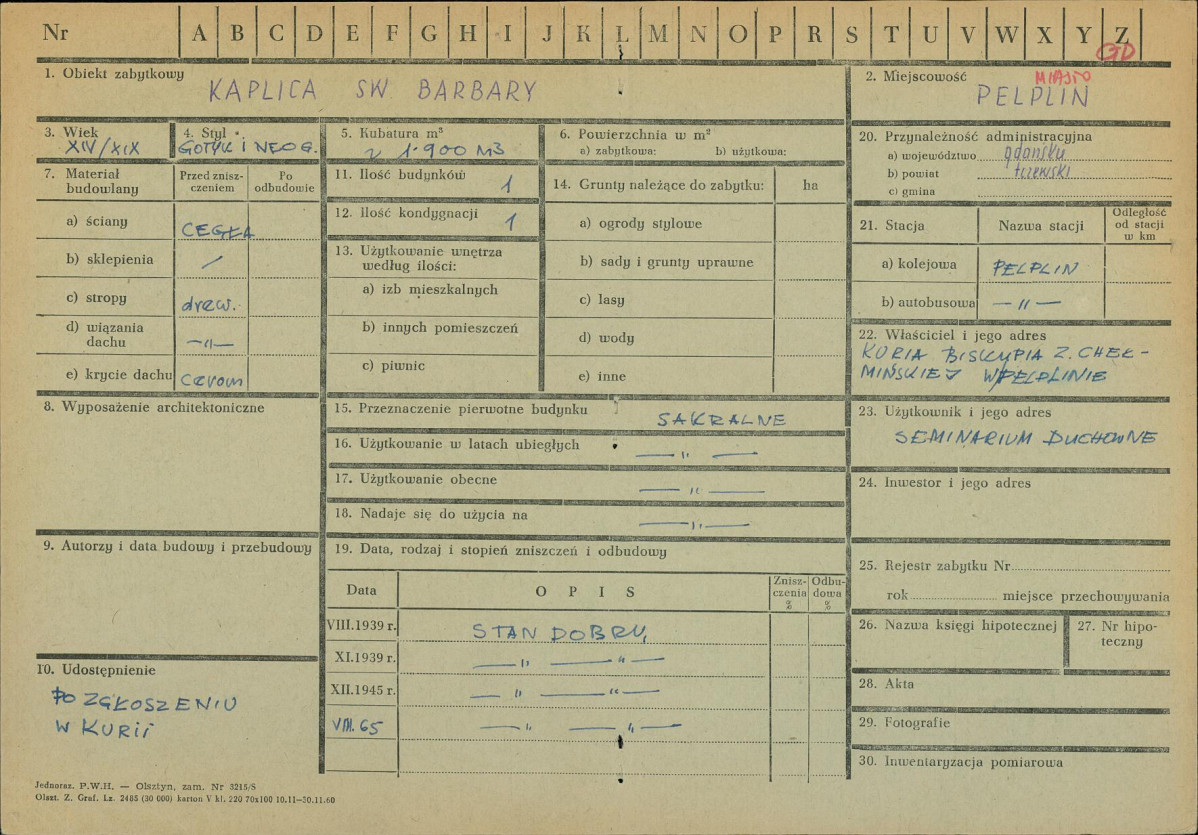 Nr A B C D E F G H I J K L M N O P R S T U V W X Y Z
GD
1. Obiekt zabytkowy
KAPLICA SW. BARBARY
2. Miejscowość
MIASTO
PELPLIN
3. Wiek
XIV/XIX
4. Styl
GOTYK I NEOG.
5. Kubatura m³
~ 1·900 M3
6. Powierzchnia w m²
a) zabytkowa: b) użytkowa:
20. Przynależność administracyjna
a) województwo gdańsku
b) powiat tczewski
c) gmina
7. Materiał budowlany
Przed zniszczeniem
Po odbudowie
a) ściany CEGŁA
b) sklepienia /
c) stropy drew.
d) wiązania dachu —„—
e) krycie dachu Ceram
11. Ilość budynków 1
12. Ilość kondygnacji 1
13. Użytkowanie wnętrza
według ilości:
a) izb mieszkalnych
b) innych pomieszczeń
c) piwnic
14. Grunty należące do zabytku: ha
a) ogrody stylowe
b) sady i grunty uprawne
c) lasy
d) wody
e) inne
21. Stacja Nazwa stacji Odległość od stacji w km
a) kolejowa PELPLIN
b) autobusowa —„—
22. Właściciel i jego adres
KURIA BISKUPIA Z. CHEŁ-
MIŃSKIEJ W PELPLINIE
8. Wyposażenie architektoniczne
15. Przeznaczenie pierwotne budynku SAKRALNE
16. Użytkowanie w latach ubiegłych —„—
17. Użytkowanie obecne —„—
18. Nadaje się do użycia na —„—
23. Użytkownik i jego adres
SEMINARIUM DUCHOWNE
24. Inwestor i jego adres
9. Autorzy i data budowy i przebudowy
19. Data, rodzaj i stopień zniszczeń i odbudowy
Data O P I S Zniszczenia % Odbudowa %
VIII.1939 r. STAN DOBRY,
XI.1939 r. —„— —„—
XII.1945 r. —„— —„—
VIII. 65 —„— —„—
25. Rejestr zabytku Nr
rok miejsce przechowywania
26. Nazwa księgi hipotecznej
27. Nr hipo-
teczny
28. Akta
29. Fotografie
30. Inwentaryzacja pomiarowa
10. Udostępnienie
PO ZGŁOSZENIU
W KURII
Jednoraz. P.W.H. — Olsztyn, zam. Nr 3215/S
Olszt. Z. Graf. Lz. 2485 (30 000) karton V kl. 220 70x100 10.11—30.11.60